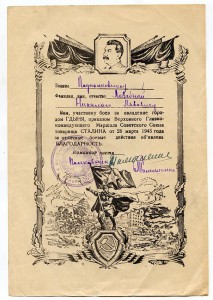 Звание
Фамилия, имя, отчество
Николаю Павловичу
Вам, участнику боев за овладение горо-
дом ГДЫНЯ, приказом Верховного Главно-
командующего Маршала Советского Союза
товарища СТАЛИНА от 28 марта 1945 года
за отличные боевые действия объявлена
БЛАГОДАРНОСТЬ.
Командир части